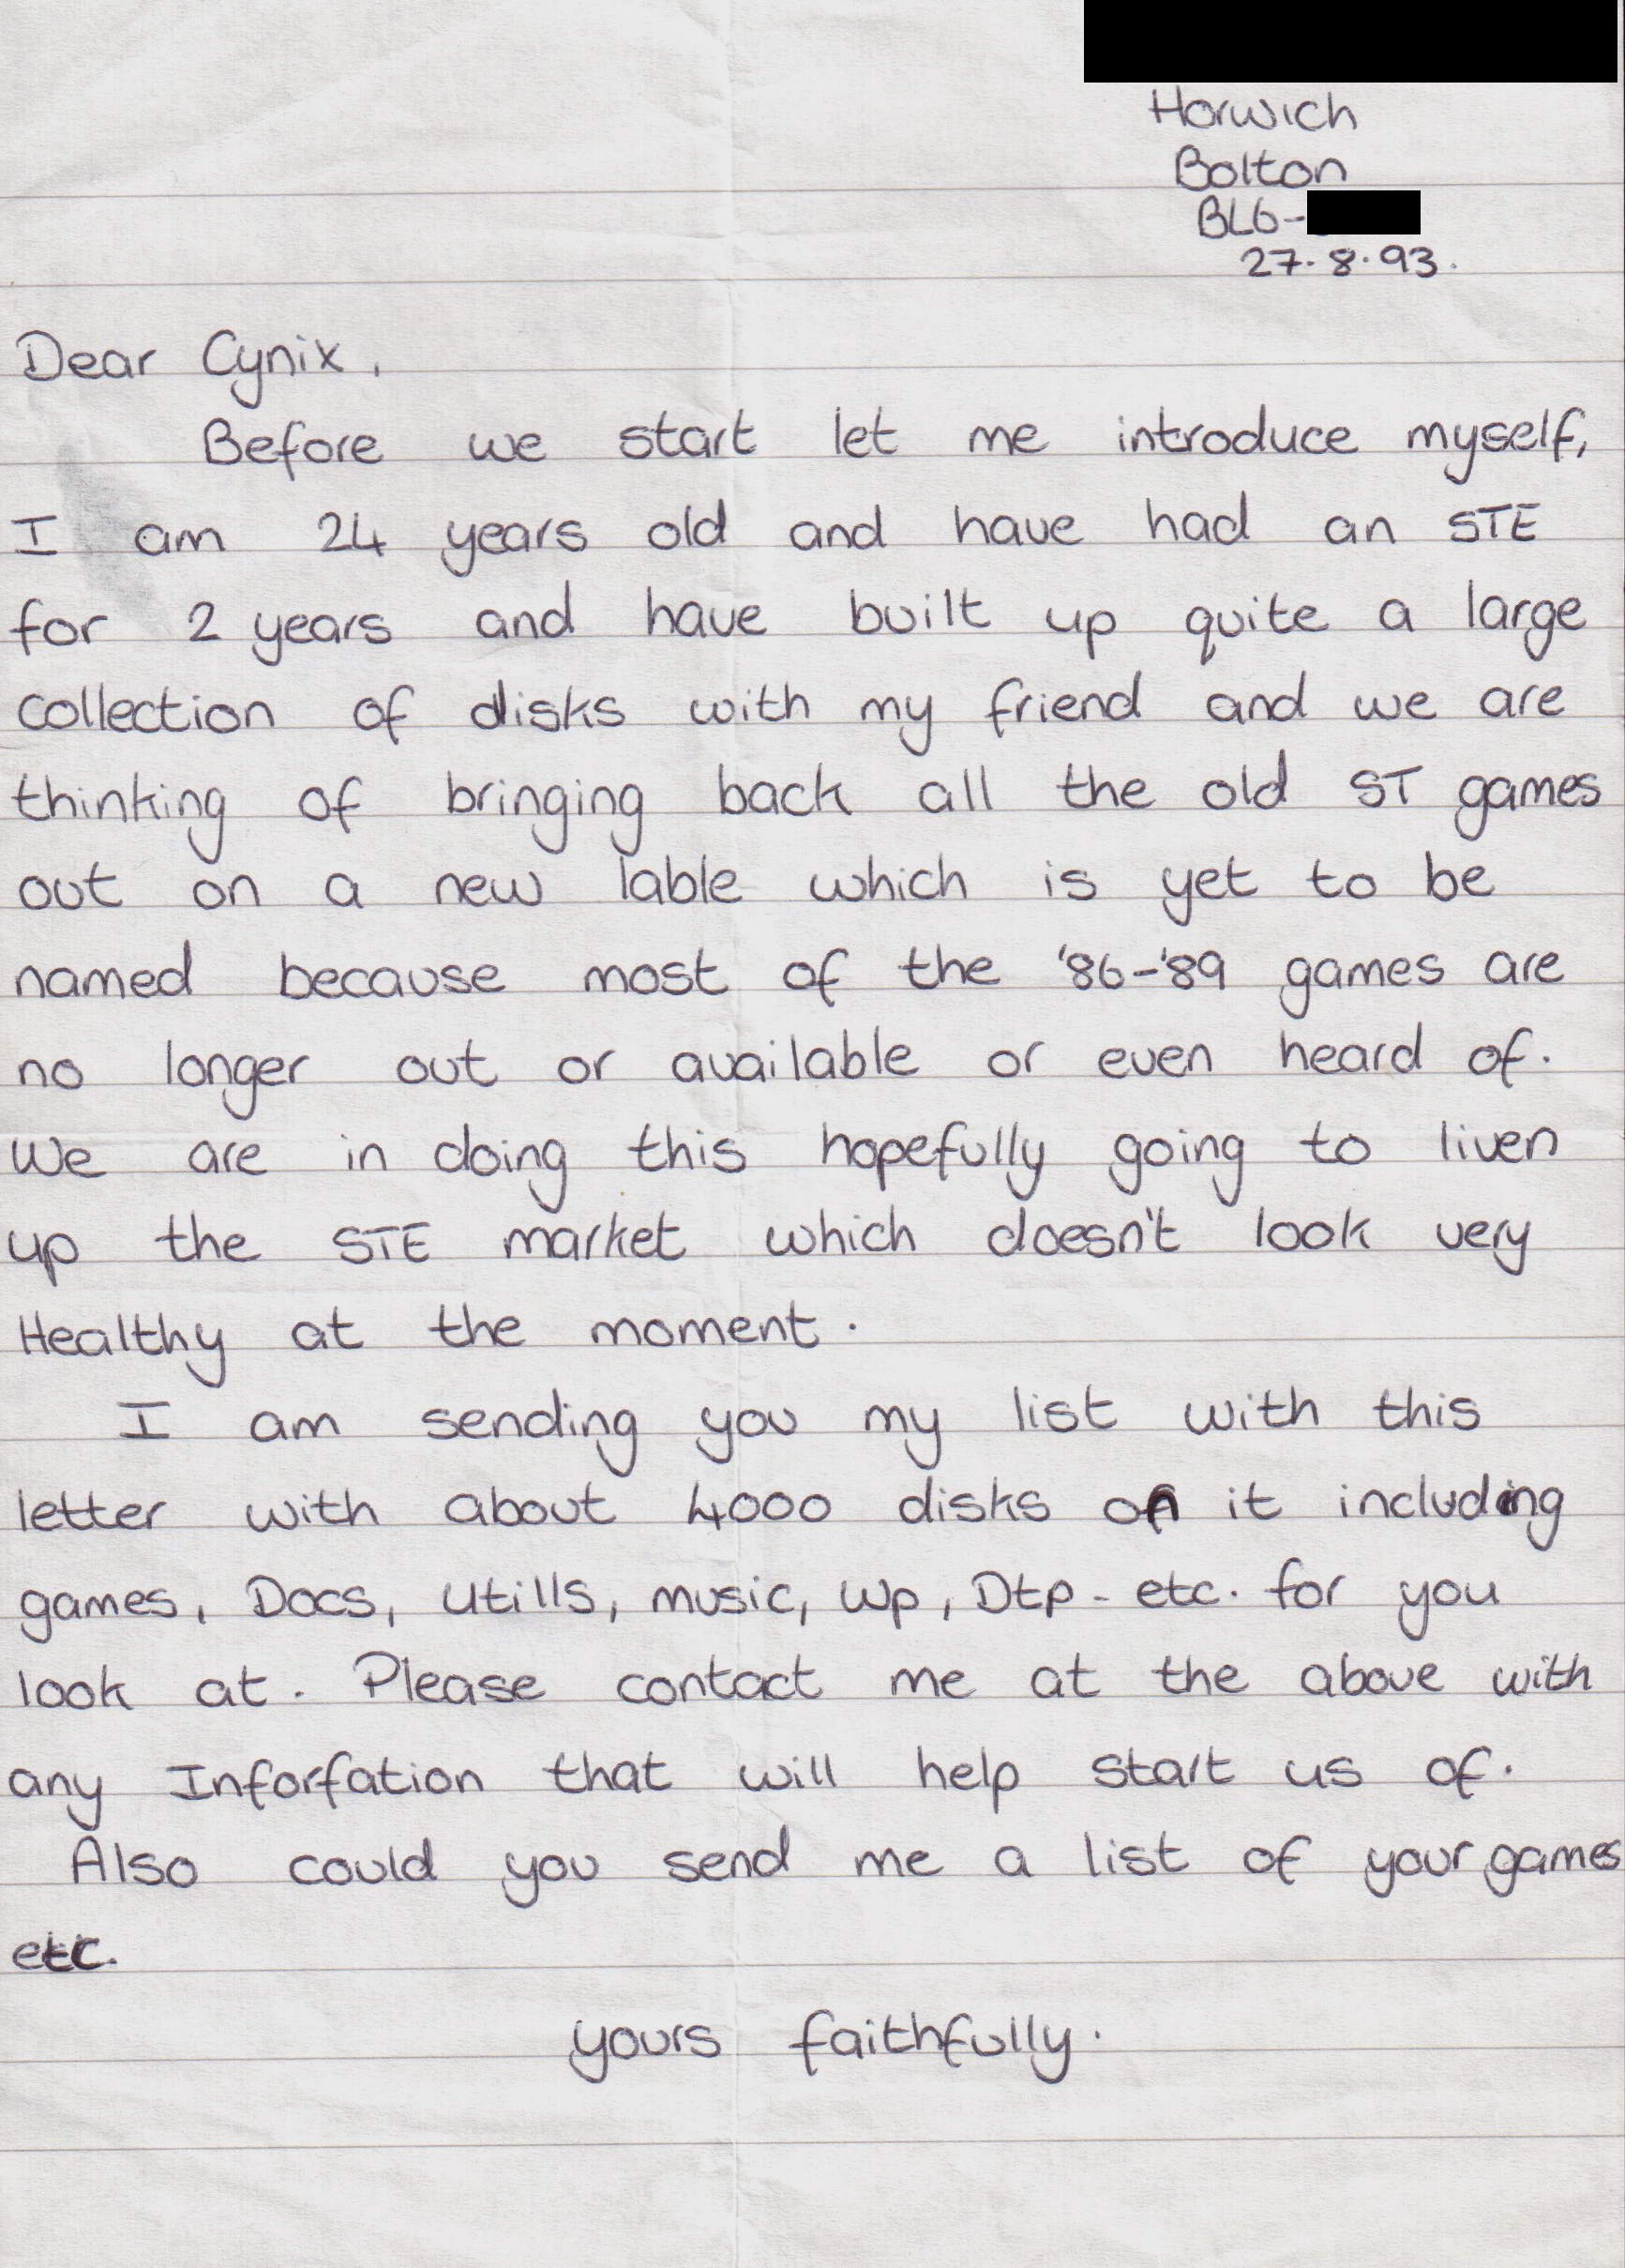 Horwich
Bolton
BL6-
27.8.93.
Dear Cynix,
Before we start let me introduce myself,
I am 24 years old and have had an STE
for 2 years and have built up quite a large
collection of disks with my friend and we are
thinking of bringing back all the old ST games
out on a new lable which is yet to be
named because most of the '86-'89 games are
no longer out or available or even heard of.
We are in doing this hopefully going to liven
up the STE market which doesn't look very
Healthy at the moment.
I am sending you my list with this
letter with about 4000 disks on it including
games, Docs, Utills, music, Wp, Dtp - etc. for you
look at. Please contact me at the above with
any Inforfation that will help start us of.
Also could you send me a list of your games
etc.
yours faithfully.